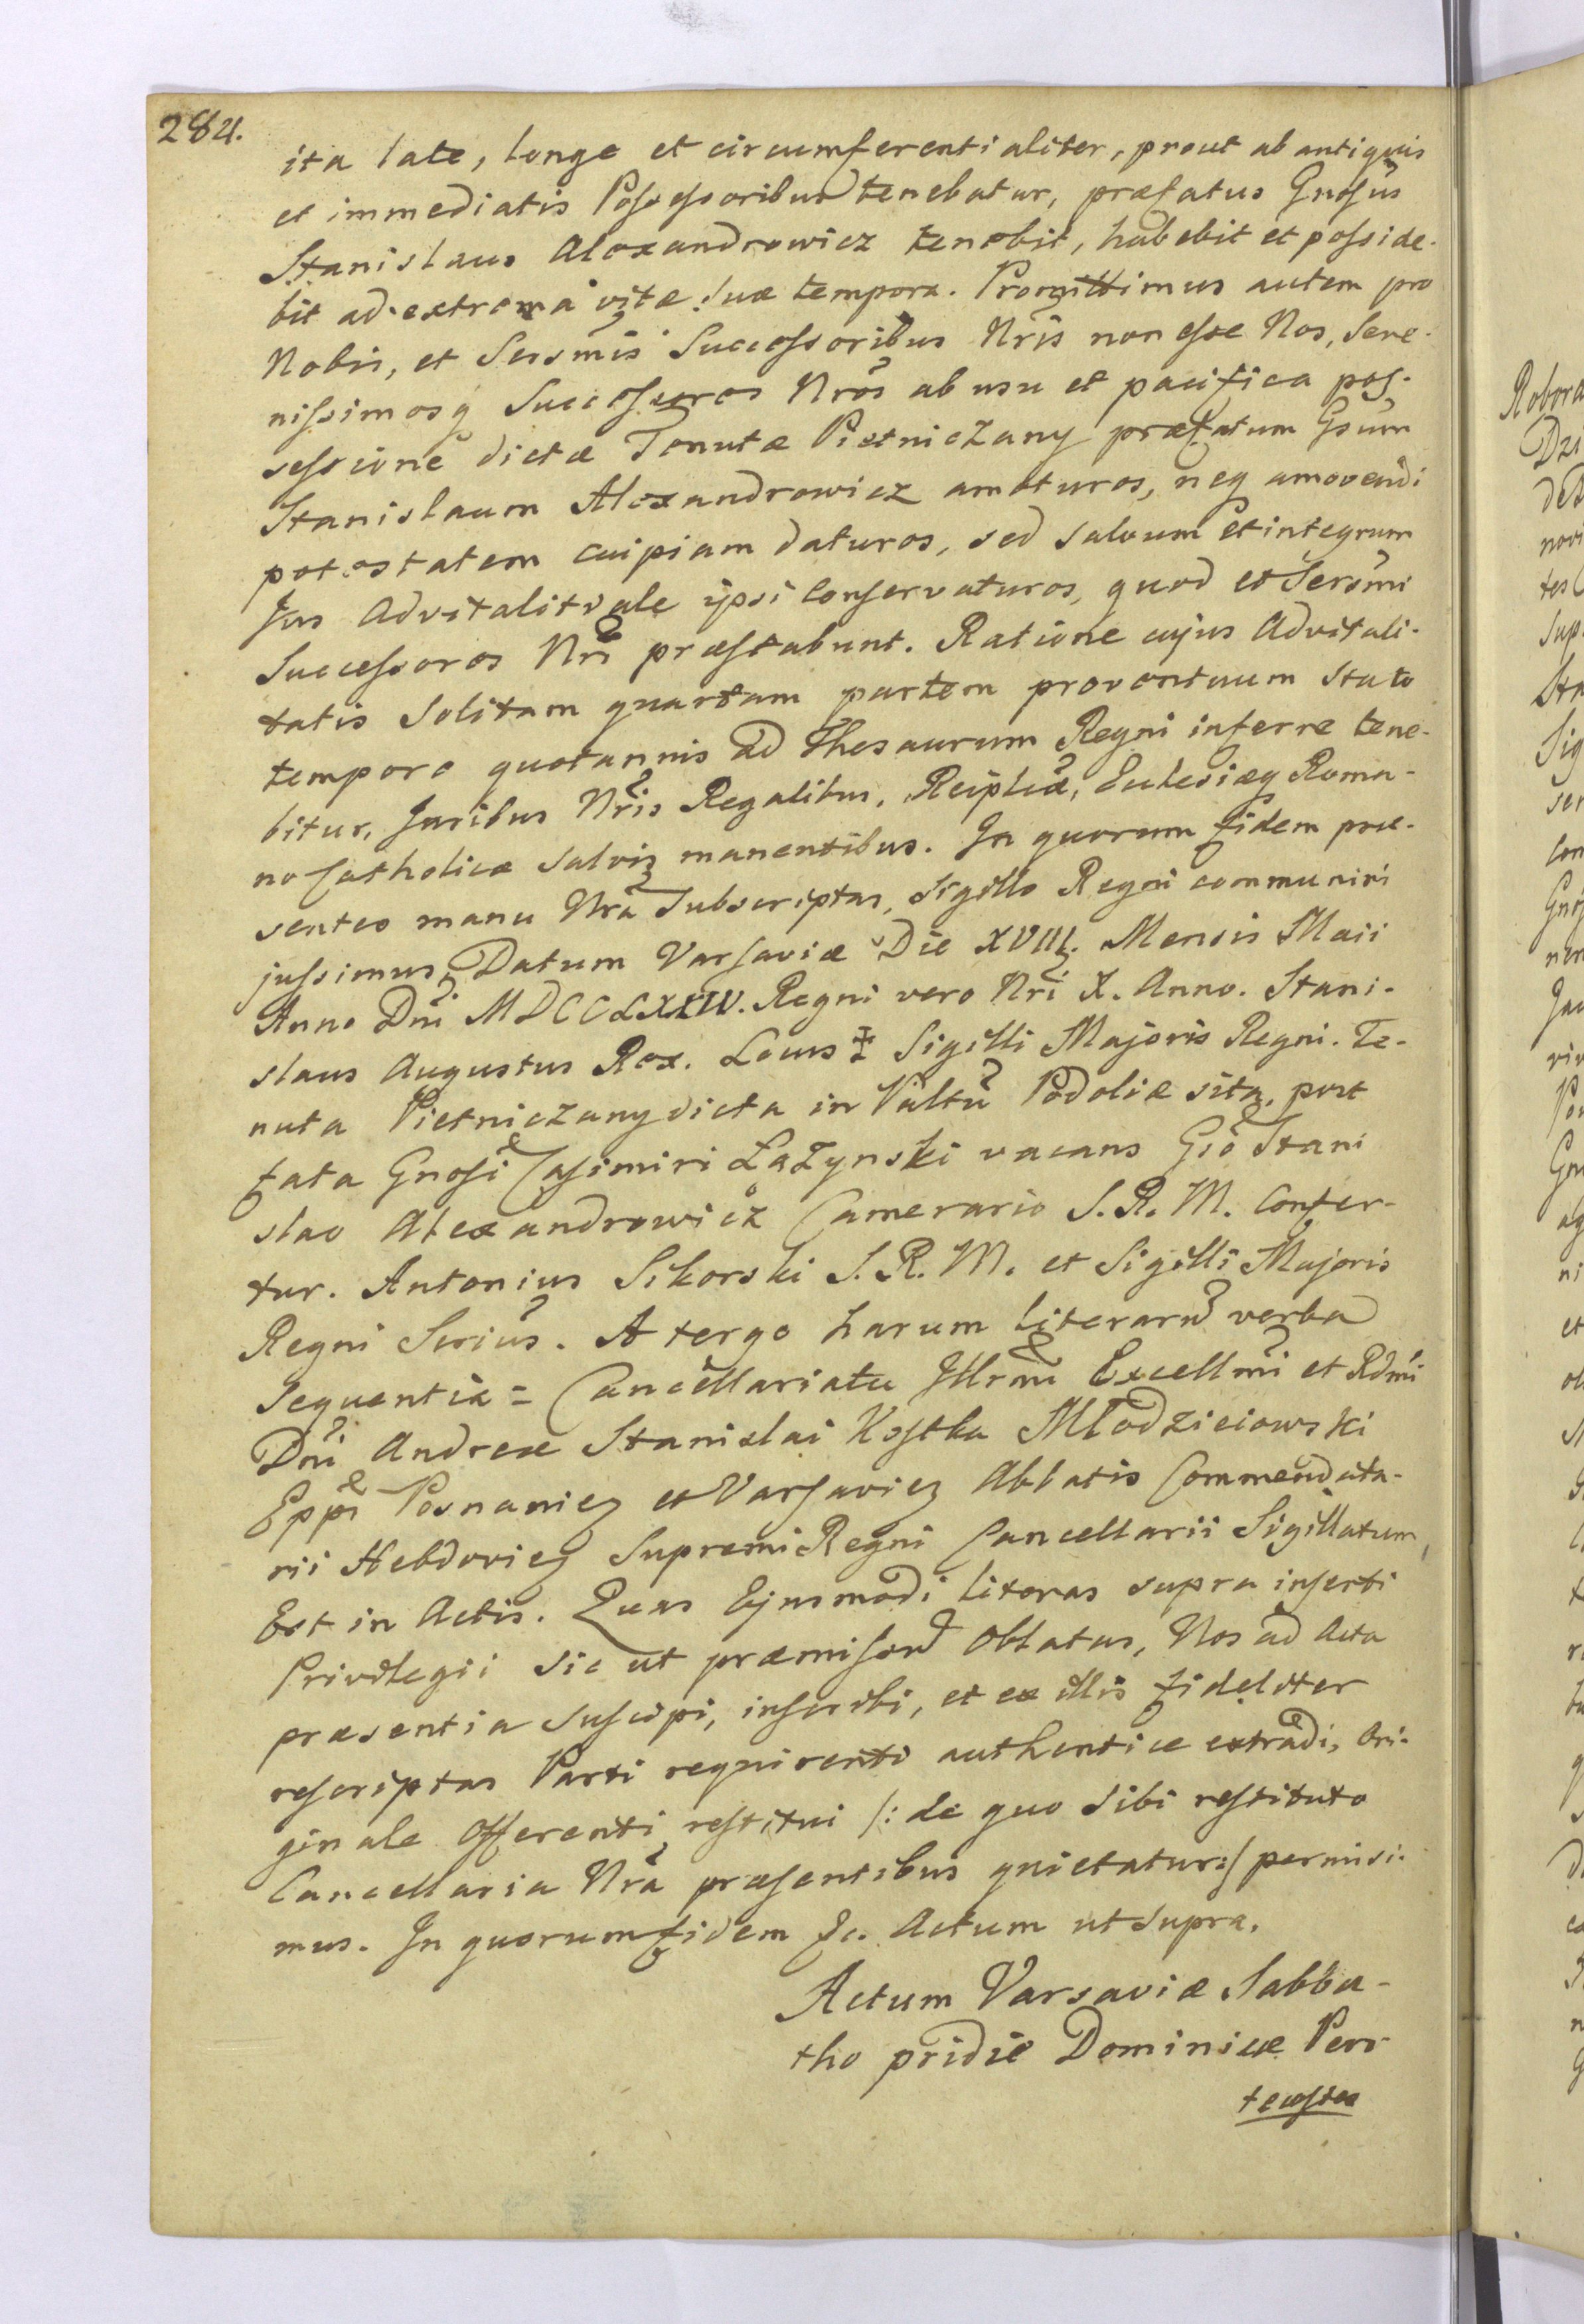 284.
ita late, longe et circumferentialiter, prout ab antiquis
et immediatis Possessoribus tenebatur, præfatus Gnosus
Stanislaus Alexandrowicz tenebit, habebit et posside-
bit ad extrema vitæ suæ tempora. Promittimus autem pro
Nobis, et Sersmis Successoribus Nris non esse Nos, Sere-
nissimosq Successores Nros ab usu et pacifica pos-
sessione dictæ Tenutæ Pietniczany præfatum Gsum
Stanislaum Alexandrowicz amoturos, neq amovendi
potestatem cuipiam daturos, sed salvum et integrum
Jus Advitalitale ipsi conservaturos, quod et Sersmi
Successores Nri præstabunt. Ratione cujus Advitali-
tatis solitam quartam partem proventuum stato
tempore quotannis ad Thesaurum Regni inferre tene-
bitur, Juribus Nris Regalibus, Reiplcæ, Ecclesiæq Roma-
no Catholicæ salvis manentibus. In quorum fidem præ-
sentes manu Nra subscriptas, Sigillo Regni communiri
jussimus. Datum Varsaviæ Die XVIII. Mensis Maii
Anno Dni MDCCLXXIV. Regni vero Nri X. Anno. Stani-
slaus Augustus Rex. Locus Sigilli Majoris Regni. Te-
nuta Pietniczany dicta in Palttu Podoliæ sita, post
fata Gnosi Casimiri Łązynski vacans Gso Stani
slao Alexandrowicz Camerario S. R. M. confer-
tur. Antonius Sikorski S. R. M. et Sigilli Majoris
Regni Srius. A tergo harum literaru verba
sequentia = Cancellariatu Illrmi Excellmi et Rdmi
Dni Andreæ Stanislai Kostka Młodzieiowski
Eppi Posnanien et Varsavien Abbatis Commendata-
rii Hebdovien Supremi Regni Cancellarii Sigillatum,
Est in Actis. Quas Ejusmodi literas supra inserti
Privilegii sic ut præmissu oblatas, Nos ad Acta
præsentia suscipi, inscribi, et ex illis fideliter
rescriptas Parti requirenti authentice extradi, Ori-
ginale Offerenti restitui /: de quo sibi restituto
Cancellaria Nra præsentibus quietatur :/ permisi-
mus. In quorum fidem &c. Actum ut supra.
Actum Varsaviæ Sabba-
tho pridie Dominicæ Pen
tecostes